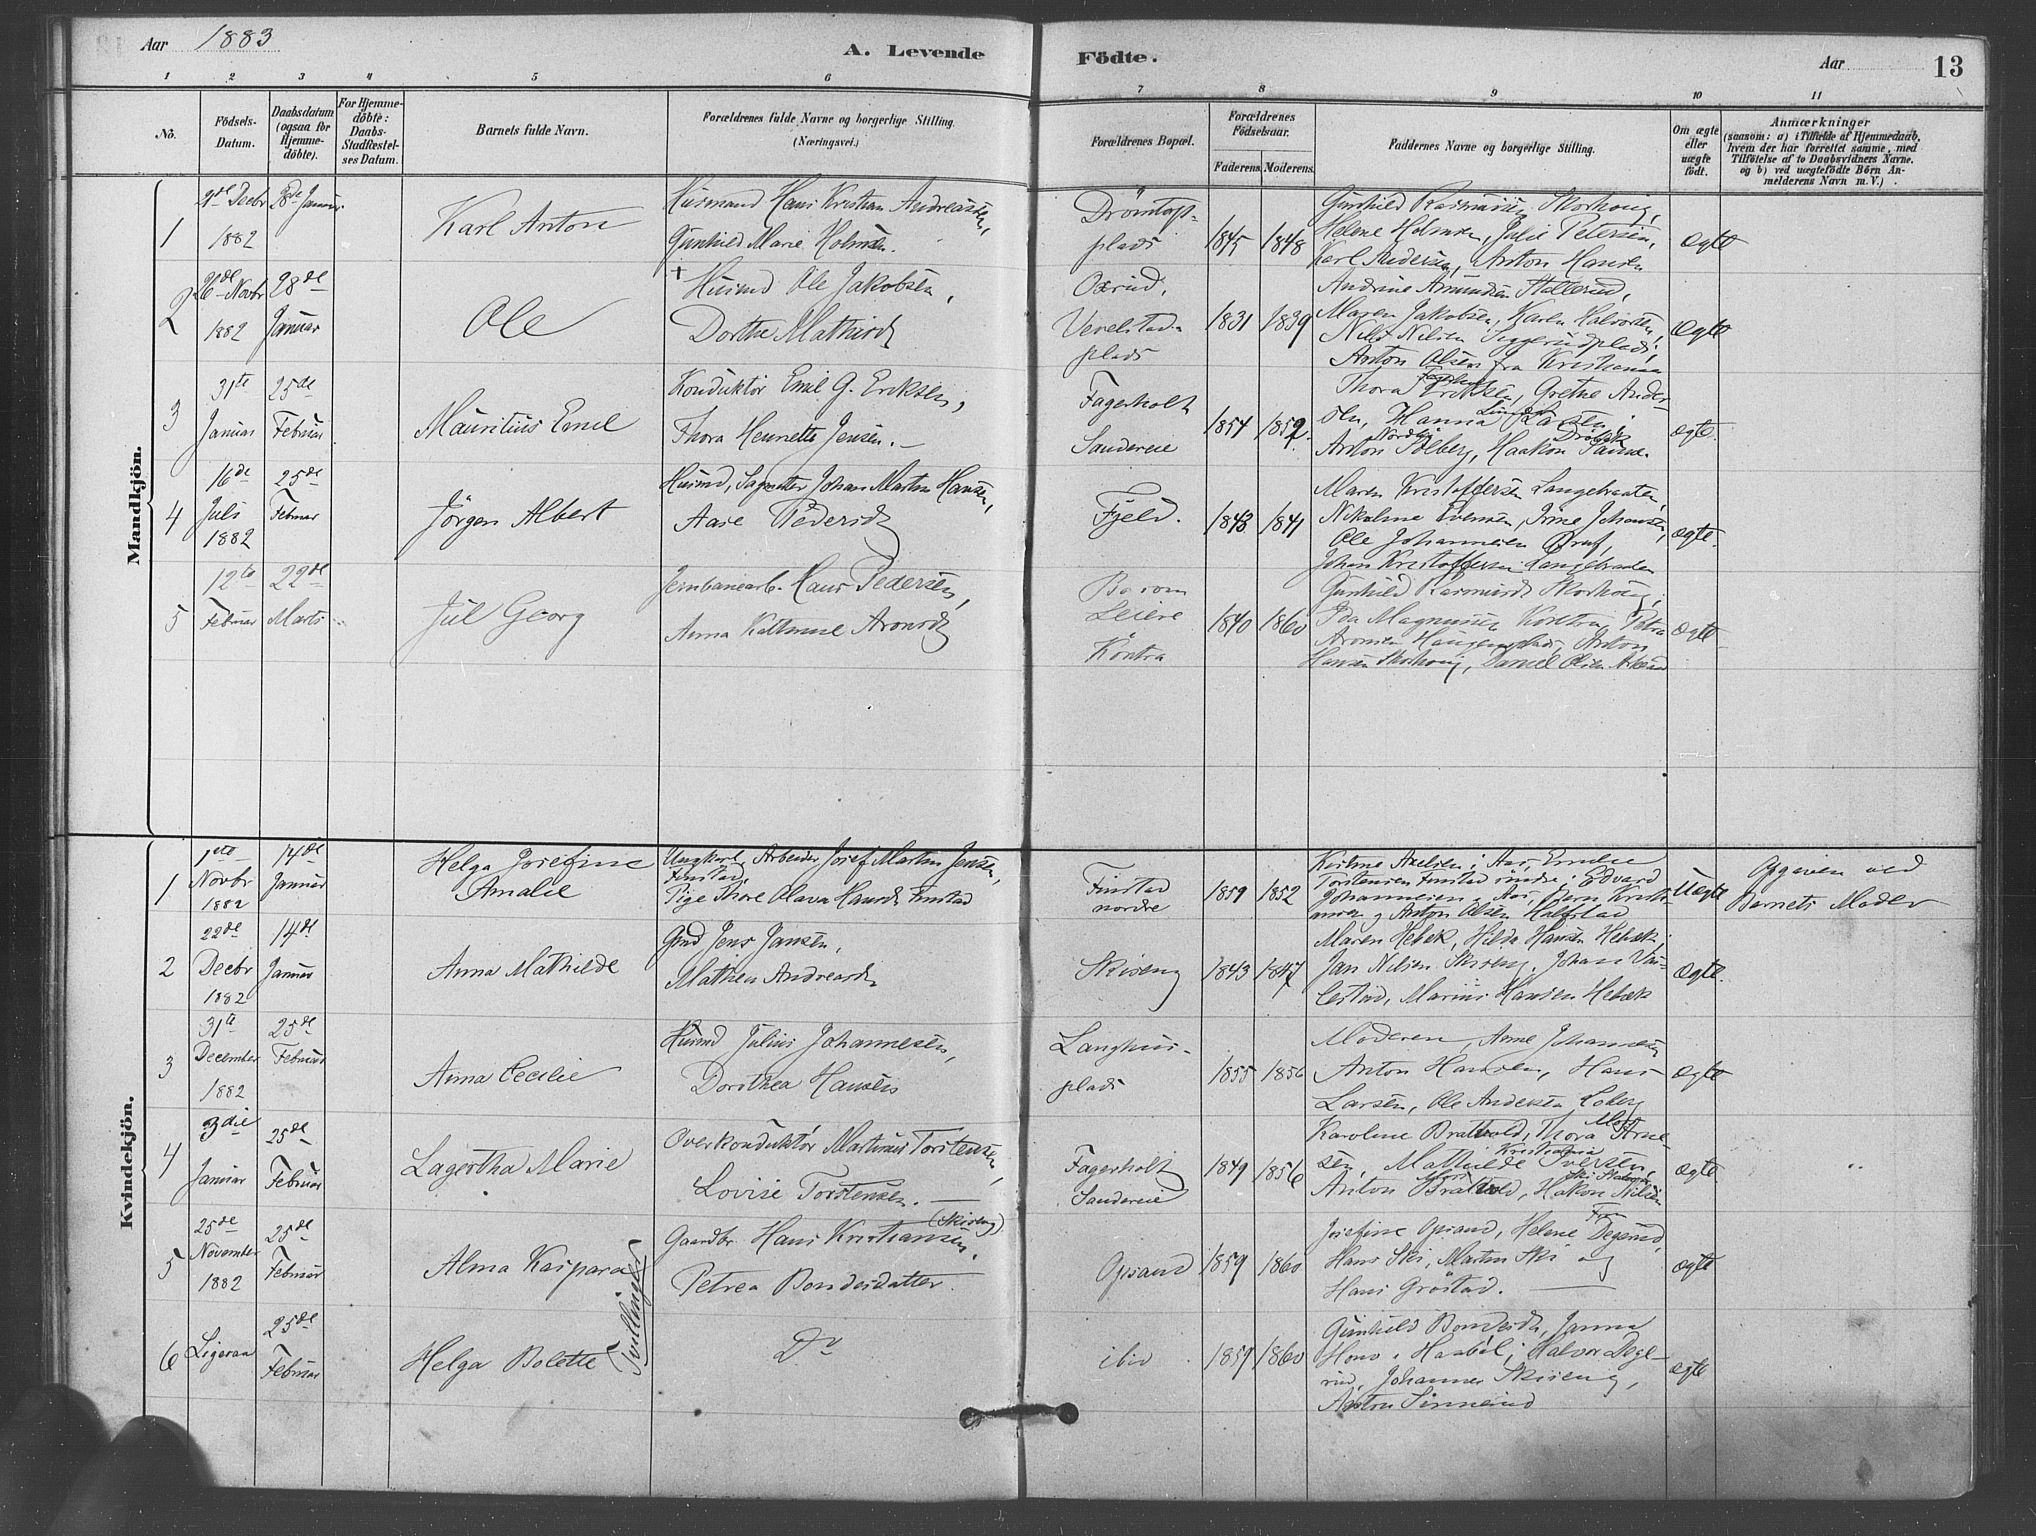 Aar 1883
A. Levende
Födte.
Aar
13
1 2 3 4 5 6 7 8 9 10 11
No.
Födsels-
Datum.
Daabsdatum
(ogsaa for
Hjemme-
döbte).
For Hjemme-
döbte:
Daabs-
Stadfæstel-
ses Datum.
Barnets fulde Navn.
Forældrenes fulde Navne og borgerlige Stilling.
(Næringsvei.)
Forældrenes Bopæl.
Forældrenes
Födselsaar.
Faderens. Moderens.
Faddernes Navne og borgerlige Stilling.
Om ægte
eller
uægte
födt.
Anmærkninger
(saasom: a) i Tilfælde af Hjemmedaab,
hvem der har forrettet samme, med
Tilföielse af to Daabsvidners Navne,
og b) ved uægtefödte Börn An-
melderens Navn m. V.).
Mandkjön.
1
Decbr
1882
28de Januar
Karl Anton
Husmand Hans Kristian Andreassen,
Gunhild Marie Holmsen.
Drömtorp-
plads
1845 1848
Gunhild Rasmussen Skorhoug,
Helene Holmsen, Julie Petersen,
Karl Andersen, Anton Hansen
ægte
2
26de Novbr
1882
28de
Januar
Ole
† Husmd Ole Jakobsen,
Dorthe Mathisd
Oxrud,
Vevelstad-
plads
1831 1839
Andrine Amundsen Stallerud,
Maren Jakobsen, Karen Halvorsen,
Nils Nilsen Siggerudplads,
Anton Olsen fra Kristiania
ægte
3
31te
Januar
25de
Februar
Mauritius Emil
Konduktör Emil G. Eriksen,
Thora Henrette Jensen.
Fagerholt
Sandereie
1854 1852.
Fagerholt
Thora Eriksen, Grethe Ander-
sen, Hanna Larsen,
Nordby Dröbak
Anton Solberg, Haakon
ægte.
4
16de
Juli
1882
25de
Februar
Jörgen Albert
Husmd, Sagmster Johan Martin Hansen,
Aase Pedersd
Fjeld.
1843 1841
Maren Kristoffersen Langebraaten,
Nikoline Evensen, Johansen,
Ole Johannesen
Johan Kristoffersen Langebraaten
ægte.
5
12te
Februar
22de
Marts
Jul Georg
Jernbanearb. Hans Pedersen,
Anna Kathrine Aronsd
Leiere
Kontra
1840 1860
Gunhild Rasmusd Skorhoug,
Ida Magnussen Kontra, Petra
Aronsen Haugenplads, Anton
Hansen Skorhoug, Daniel Olsen
ægte
Kvindekjön.
1
1ste
Novbr
1882
14de
Januar
Helga Josefine
Amalie
Ungkarl, Arbeider Josef Martin Jensen,
Finstad,
Pige Thore Olava Hansd Finstad
Finstad
nordre
1859 1852
Axelsen, Aas, Emilie
Torstensen Finstad söndre, Edvard
Johannesen, Aas, Kristi-
ansen og Anton Olsen Halfstad
Uægte
Opgiven ved
Barnets Moder
2
22de
Decbr
1882
14de
Januar
Anna Mathilde
Gmd Jens Jansen,
Mathea Andreasd
Skiseng
1843 1847
Maren Hebæk, Hilda Hansen Hebæk,
Jan Nilsen Skiseng, Johan Vau-
lestad, Marius Hansen Hebæk
ægte.
3
31te
December
1882
25de
Februar
Anna Cecilie
Husmd Julius Johannesen,
Dorothea Hansen
Langhus-
plads
1855 1856
Moderen, Anne Johannesen
Anton Hansen, Hans
Larsen, Ole Andersen Loberg
ægte
4
3die
Januar
25de
Februar
Lagertha Marie
Overkonduktör Martinus Torstensen,
Lovise Torstensen.
Fagerholt
Sandereie
1849 1856
Karoline Bratvold, Thora Arne
Moss
sen, Mathilde Iversen,
Kristiania
Moss Ski Station
Anton Bratvold, Hakon Nilsen
ægte.
5
25de
November
1882
25de
Februar
Alma Kaspara
Tvillinger
Gaardbr. Hans Kristiansen (Skiseng),
Petrea Bondesdatter.
Opsand
1859 1860
Josefine Opsand, Helene Degerud,
Hans Ski, Martin Ski og
Hans Gröstad.
ægte
6
Ligesaa
25de
Februar
Helga Bolette
Do
ibid
1859 1860
Gunhild Bondesd, Janna
Hovo, Haabøl, Halvor Dege-
rud, Johannes Skiseng,
Anton Sinnerud
ægte